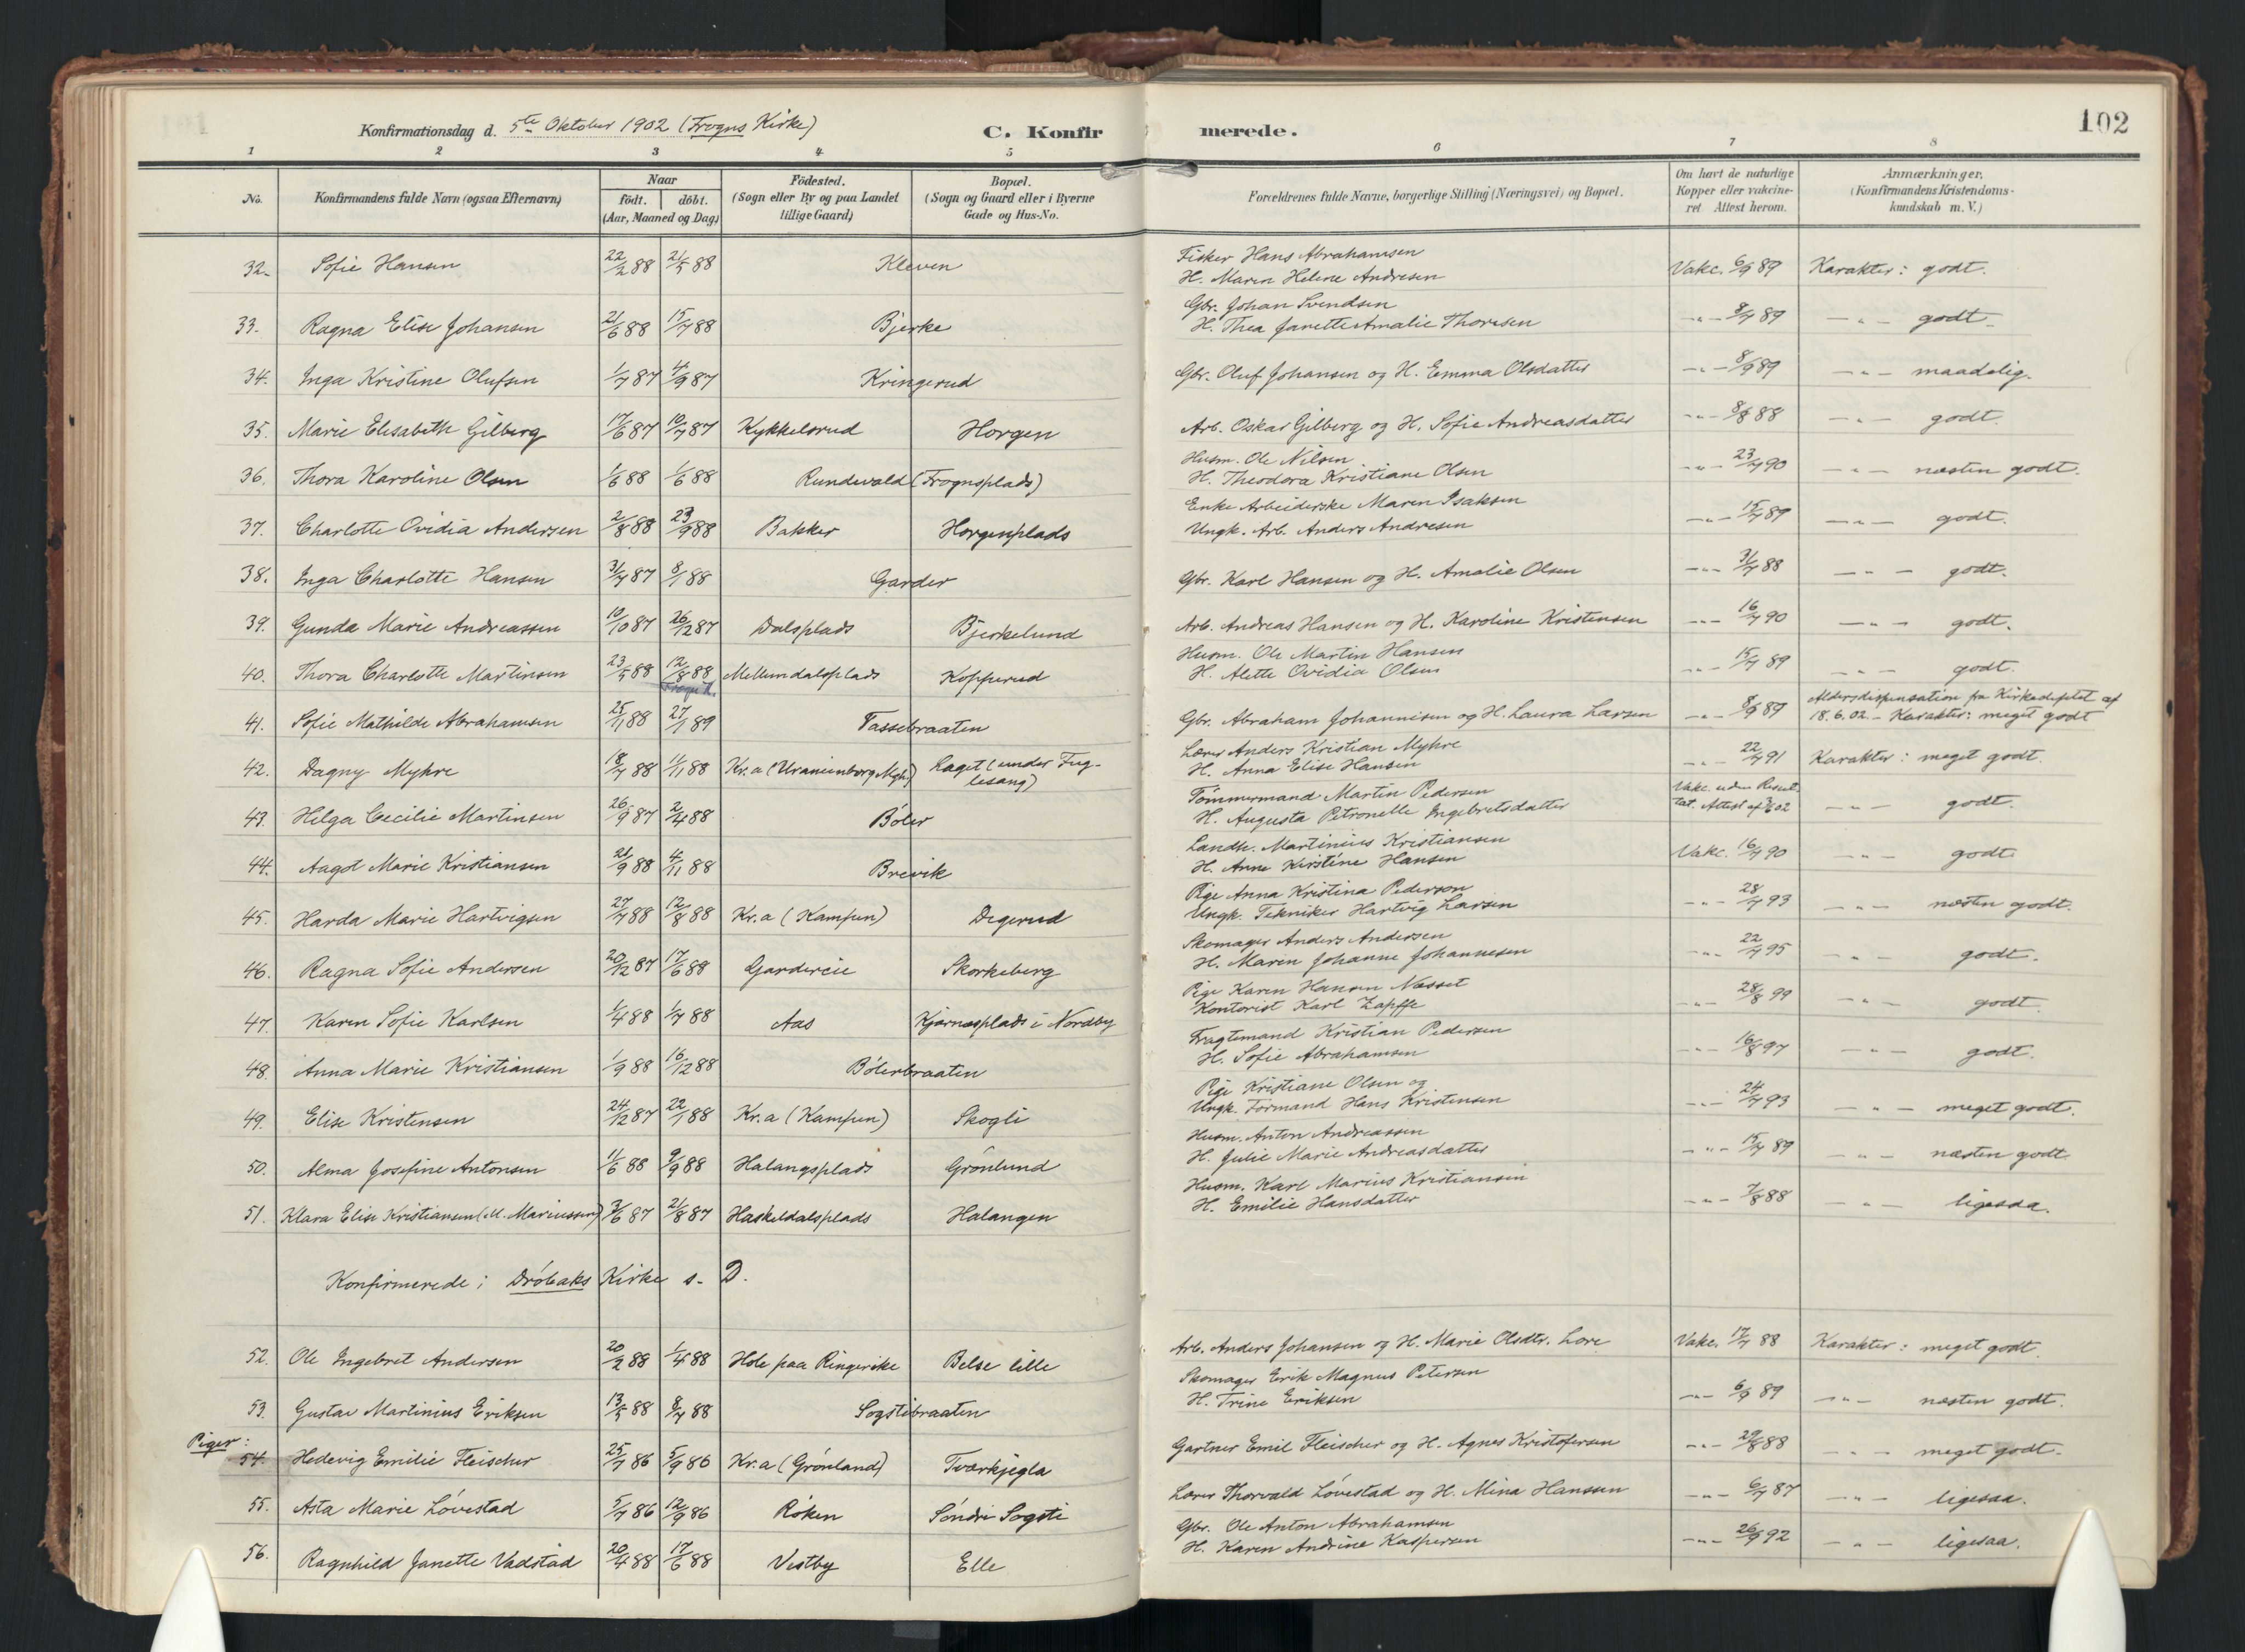 102
Konfirmationsdag d. 5te Oktober 1902 (Frogns Kirke)
C. Konfir merede.
1 2 3 4 5 6 7 8
No. Konfirmandens fulde Navn (ogsaa Efternavn) Naar födt. döbt. (Aar, Maaned og Dag) Födested. (Sogn eller By og paa Landet tillige Gaard) Bopæl. (Sogn og Gaard eller i Byerne Gade og Hus-No. Forældrenes fulde Navne, borgerlige Stilling (Næringsvei) og Bopæl. Om havt de naturlige Kopper eller vakcineret Attest herom. Anmærkninger. (Konfirmandens Kristendomskundskab m. V.)
32. Sofie Hansen 22/2 88 21/5 88 Kleven Fisker Hans Abrahamsen H. Maren Helene Andresen Vakc. 6/9 89 Karakter: godt.
33. Ragna Elise Johansen 21/6 88 15/7 88 Bjerke Gbr. Johan Svendsen H. Thea Janette Amalie Thoresen -"- 8/7 89 -"- godt.
34. Inga Kristine Olufsen 1/7 87 4/9 87 Kringerud Gbr. Oluf Johansen og H. Emma Olsdatter -"- 8/9 89 -"- maadelig.
35. Marie Elisabeth Gilberg 17/6 87 10/7 87 Kykkelsrud Horgen Arb. Oskar Gilberg og H. Sofie Andreasdatter -"- 8/8 88 -"- godt.
36. Thora Karoline Olsen 1/6 88 1/6 88 Rundevald (Frognsplads) Husm. Ole Nilsen H. Theodora Kristiane Olsen -"- 23/7 90 -"- næsten godt.
37. Charlotte Ovidia Andersen 2/8 88 23/9 88 Bakker Horgenplads Enke Arbeiderske Maren Isaksen Ungk. Arb. Anders Andresen -"- 15/7 89 -"- godt.
38. Inga Charlotte Hansen 31/7 87 8/1 88 Garder Gbr. Karl Hansen og H. Amalie Olsen -"- 31/7 88 -"- godt.
39. Gunda Marie Andreassen 10/10 87 26/12 87 Dalsplads Bjerkelund Arb. Andreas Hansen og H. Karoline Kristensen -"- 16/7 90 -"- godt.
40. Thora Charlotte Martinsen 23/5 88 12/8 88 Mellumdalsplads Kopperud Husm. Ole Martin Hansen H. Alette Ovidia Olsen -"- 15/7 89 -"- godt.
41. Sofie Mathilde Abrahamsen 25/11 88 27/1 89 Tassebraaten Gbr. Abraham Johannisen og H. Laura Larsen -"- 8/9 89 Aldersdispensation fra Kirkedeptet af 18.6.02. - Karakter: meget godt
42. Dagny Myhre 18/7 88 1/11 88 Kr.a (Uranienborg Mgh.) Haget (under Fuglesang) Lærer Anders Kristian Myhre H. Anna Elise Hansen -"- 22/7 91 Karakter: meget godt.
43. Helga Cecilie Martinsen 26/9 87 2/4 88 Böler Tömmermand Martin Pedersen H. Augusta Petronelle Ingebretsdatter Vakc. uden Resultat. Attest af 02 -"- godt.
44. Aagot Marie Kristiansen 21/9 88 4/11 88 Brevik Landh. Martinius Kristiansen H. Anne Kirstine Hansen Vakc. 16/7 90 -"- godt
45. Harda Marie Hartvigsen 27/7 88 12/8 88 Kr.a (Kampen) Digerud Pige Anna Kristina Pederson Ungk. Tekniker Hartvig Larsen -"- 28/7 93 -"- næsten godt.
46. Ragna Sofie Andersen 20/12 87 17/6 88 Gardereie Skorkeberg Skomager Anders Andersen H. Maren Johanne Johannesen -"- 22/7 95 -"- godt.
47. Karen Sofie Karlsen 1/4 88 1/7 88 Aas Kjærnesplads i Nordby Pige Karen Hansen Næsset Kontorist Karl Zapffe -"- 28/8 99 -"- godt.
48. Anna Marie Kristiansen 1/9 88 16/12 88 Bölerbraaten Fragtemand Kristian Pedersen H. Sofie Abrahamsen -"- 16/8 97 -"- godt.
49. Elise Kristensen 24/12 87 22/1 88 Kr.a (Kampen) Skogli Pige Kristiane Olsen og Ungk. Formand Hans Kristensen -"- 24/7 93 -"- meget godt.
50. Alma Josefine Antonsen 11/6 88 9/9 88 Halangsplads Grönlund Husm. Anton Andreassen H. Julie Marie Andreasdatter -"- 15/7 89 -"- næsten godt.
51. Klara Elise Kristiansen (el. Mariussen) 3/6 87 21/8 87 Haskeldalsplads Halangen Husm. Karl Marius Kristiansen H. Emilie Hansdatter -"- 7/8 88 -"- ligesaa.
Konfirmerede i Dröbaks Kirke s. D.
52. Ole Ingebret Andersen 20/2 88 1/4 88 Hole paa Ringerike Belse lille Arb. Anders Johansen og H. Marie Olsdtr. Lore Vakc. 17/7 88 Karakter: meget godt.
53. Gustav Martinius Eriksen 13/5 88 8/7 88 Sogstibraaten Skomager Erik Magnus Petersen H. Trine Eriksen -"- 6/9 89 -"- næsten godt.
Piger:
54. Hedevig Emilie Fleischer 25/7 86 5/9 86 Kr.a (Grönland) Tværkjegla Gartner Emil Fleischer og H. Agnes Kristofersen -"- 29/8 88 -"- meget godt.
55. Asta Marie Lövestad 5/7 86 12/9 86 Röken Söndre Sogsti Lærer Thorvald Lövestad og H. Mina Hanssen -"- 6/7 87 -"- ligesaa.
56. Ragnhild Janette Vadstad 20/4 88 17/6 88 Vestby Elle Gbr. Ole Anton Abrahamsen H. Karen Andrine Kaspersen -"- 26/9 92 -"- ligesaa.